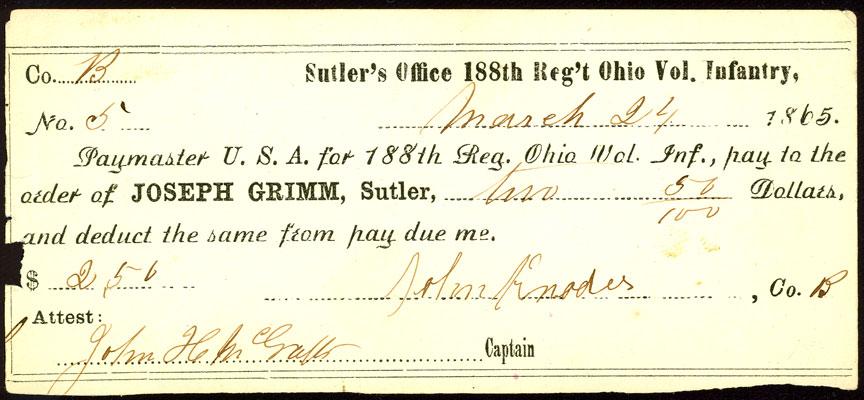 Co. B Sutler's Office 188th Reg't Ohio Vol. Infantry,
No. 5 March 24 1865.
Paymaster U. S. A. for 188th Reg. Ohio Vol. Inf., pay to the
order of JOSEPH GRIMM, Sutler, two 50/100 Dollars,
and deduct the same from pay due me.
$ 2 50 John Knodes, Co. B
Attest:
John H Mc Captain